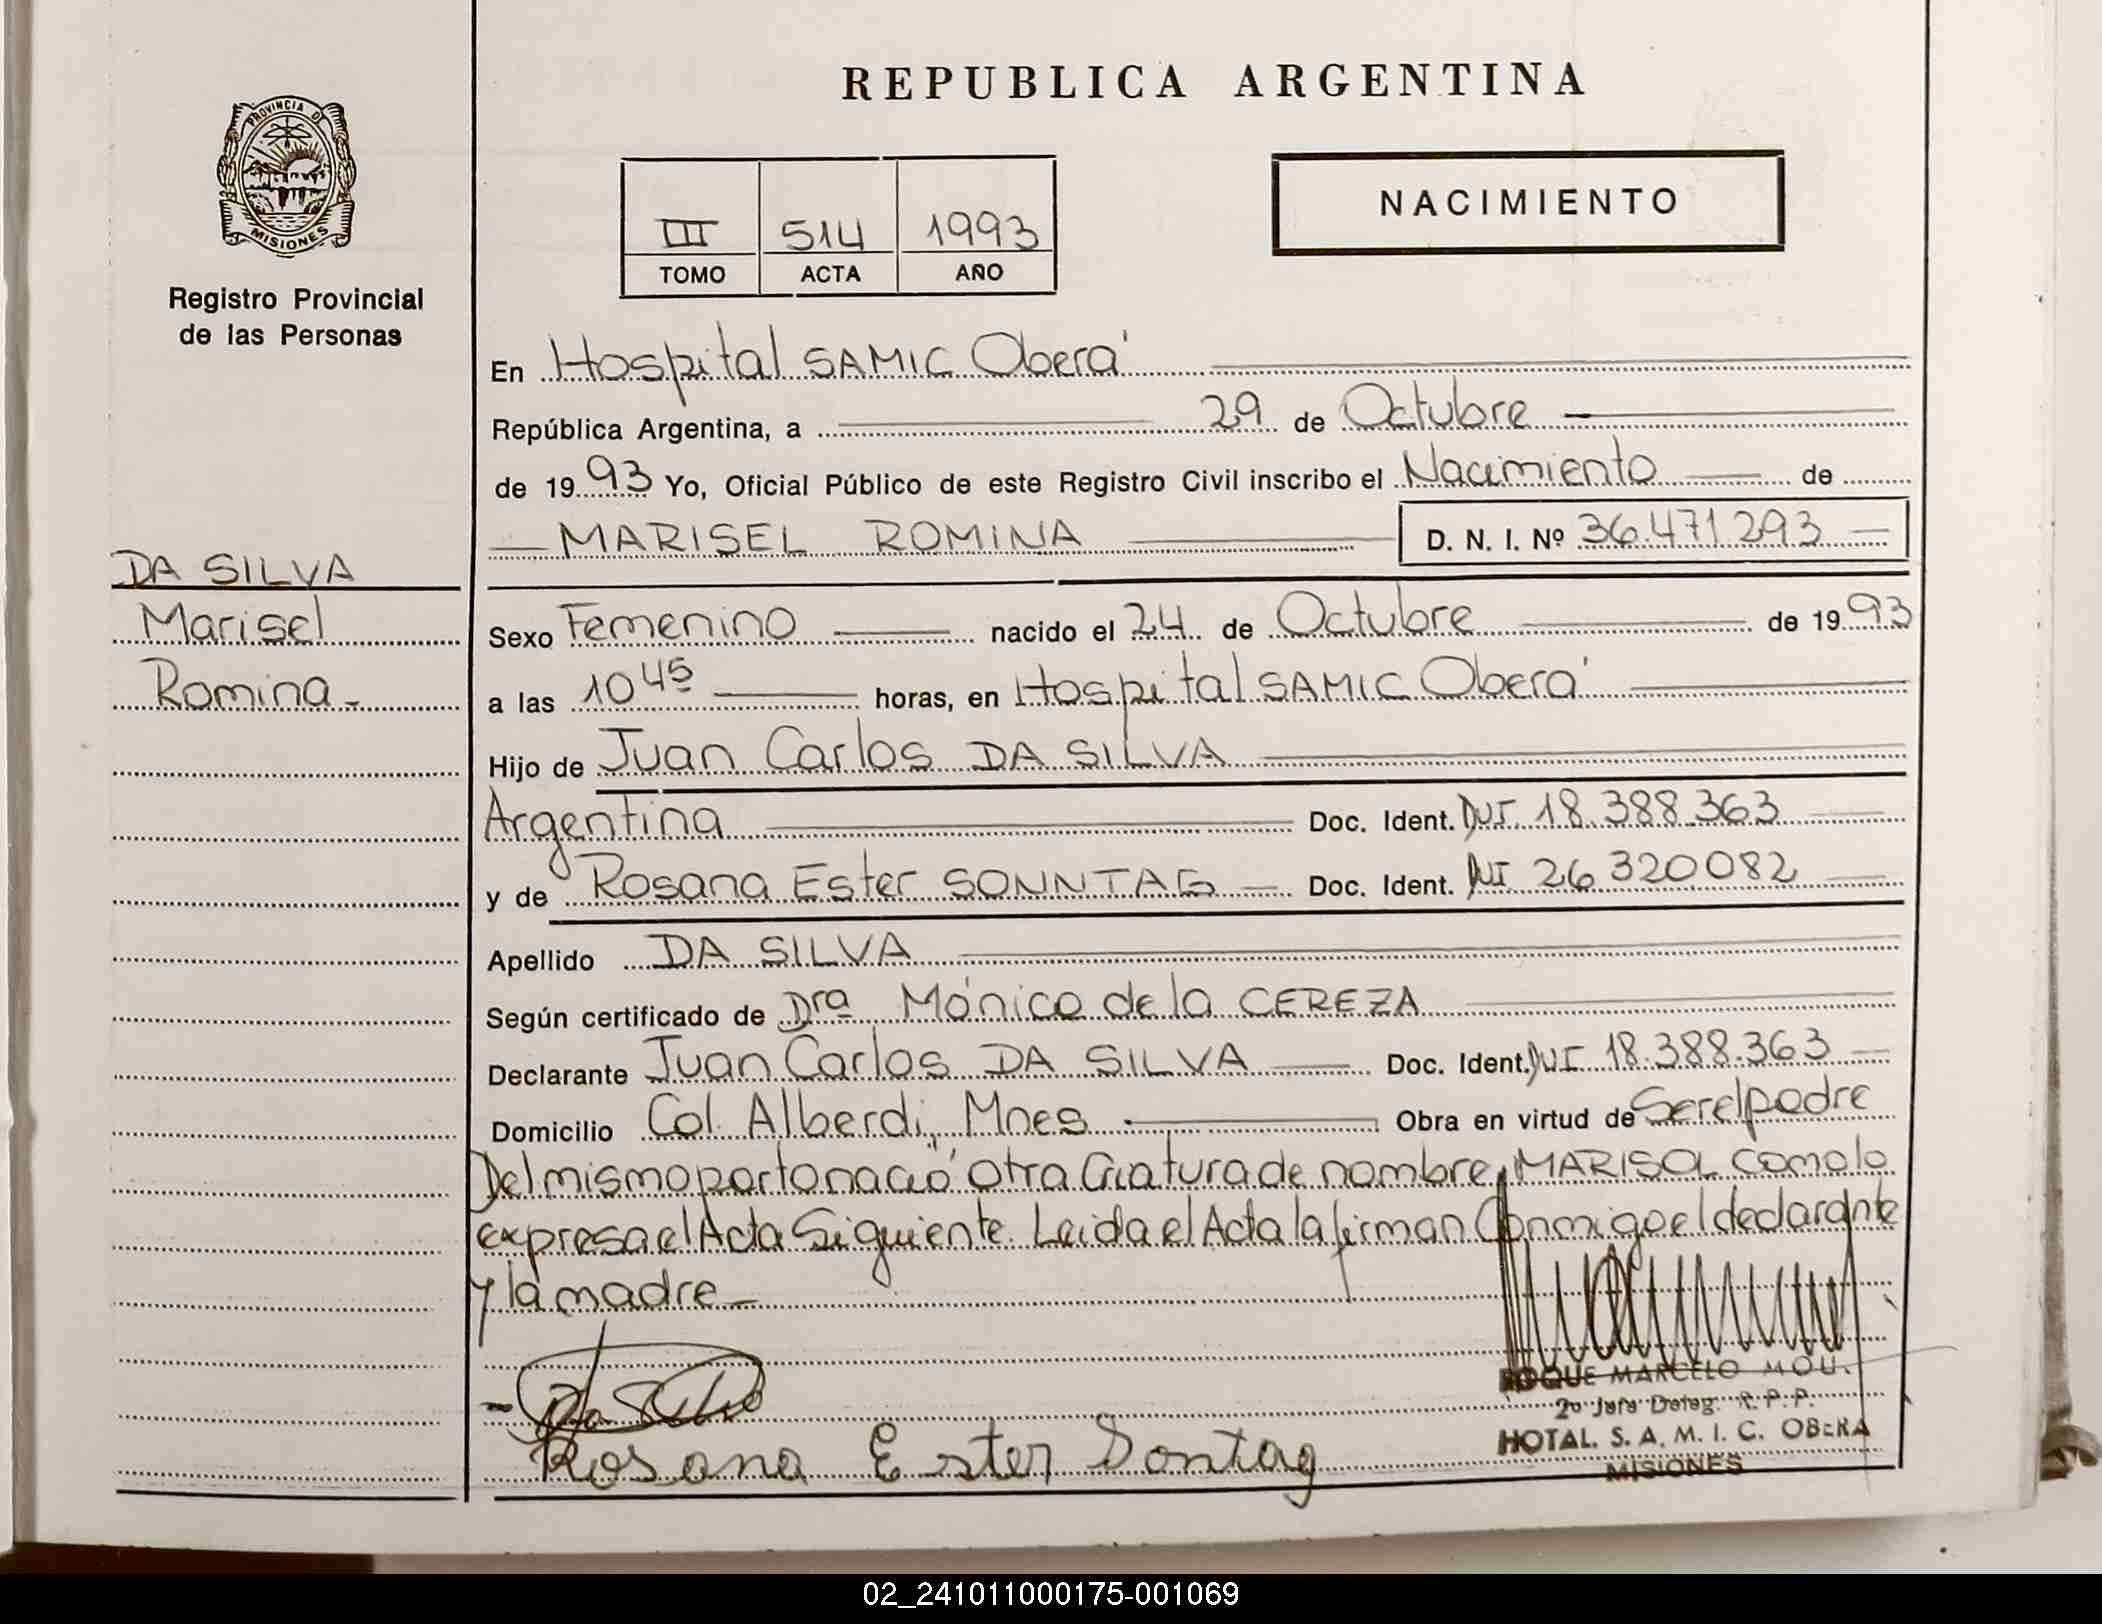 REPUBLICA ARGENTINA
PROVINCIA D
MISIONES
Registro Provincial
de las Personas
III 514 1993
TOMO ACTA AÑO
NACIMIENTO
En Hospital SAMIC Oberá
República Argentina, a 29 de Octubre
de 1993 Yo, Oficial Público de este Registro Civil inscribo el Nacimiento de
MARISEL ROMINA D. N. I. Nº 36.471.293
DA SILVA
Marisel
Romina
Sexo Femenino nacido el 24 de Octubre de 1993
a las 10 45 horas, en Hospital SAMIC Oberá
Hijo de Juan Carlos DA SILVA
Argentina Doc. Ident. DNI 18.388.363
y de Rosana Ester SONNTAG Doc. Ident. DNI 26 320.082
Apellido DA SILVA
Según certificado de Dra Mónica de la CEREZA
Declarante Juan Carlos DA SILVA Doc. Ident. DNI 18.388.363
Domicilio Col. Alberdi, Mnes Obra en virtud de Ser el padre
Del mismo parto nació otra Criatura de nombre MARISOL como lo
expresa el Acta Siguiente. Leida el Acta la firman Conmigo el declarante
y la madre
Da Silva
Rosana Ester Sontag
ROQUE MARCELO MOU.
2º Jefe Deleg. R. P. P.
HOTAL. S. A. M. I. C. OBERA
MISIONES
02_241011000175-001069